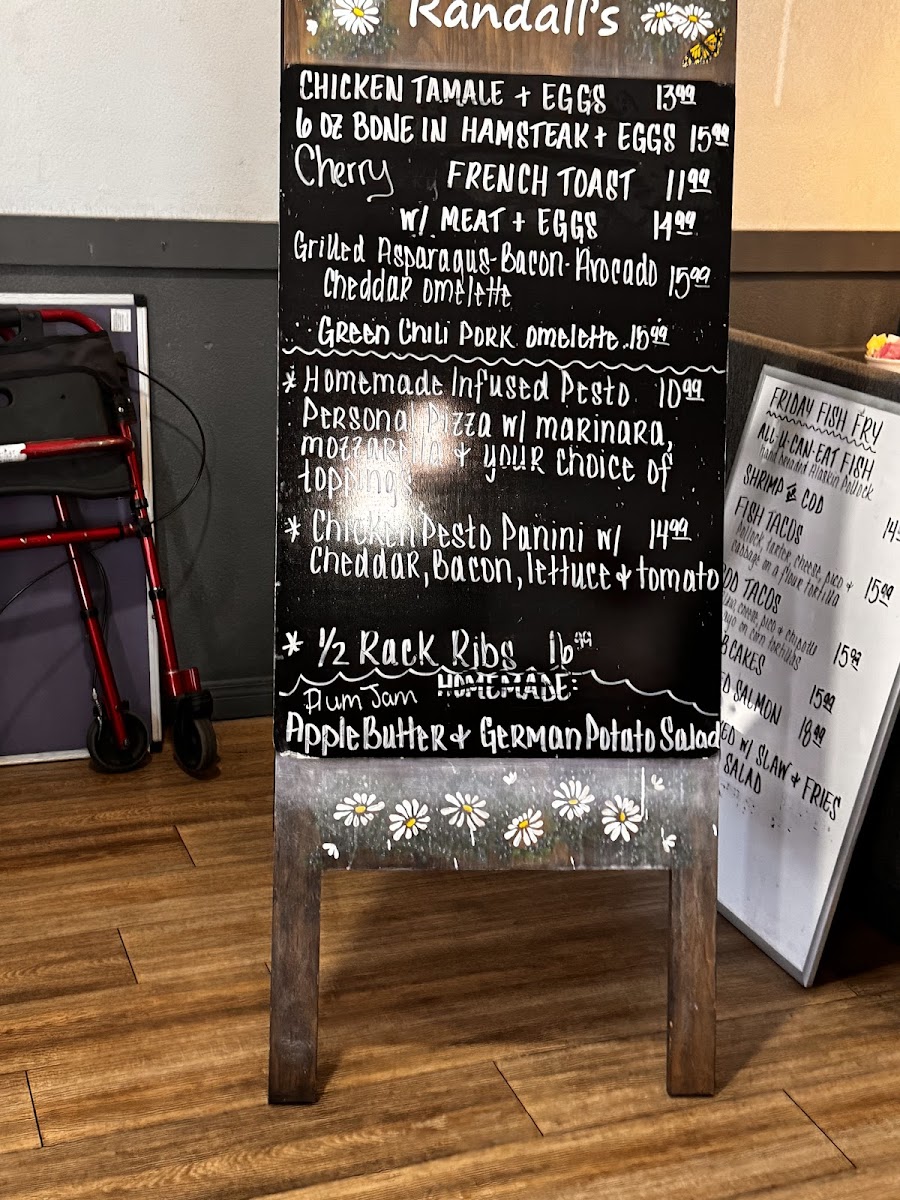 Randall's
CHICKEN TAMALE + EGGS 13.99
6 OZ BONE IN HAMSTEAK + EGGS 15.99
Cherry FRENCH TOAST 11.99
W/ MEAT + EGGS 14.99
Grilled Asparagus-Bacon-Avocado 15.99
Cheddar omelette
Green Chili PORK omelette 15.99
* Homemade Infused Pesto 10.99
Personal Pizza w/ marinara,
mozzarella & your choice of
toppings
* Chicken Pesto Panini w/ 14.99
Cheddar, Bacon, lettuce & tomato
* 1/2 Rack Ribs 16.99
HOMEMADE:
Plum Jam
Apple Butter & German Potato Salad
FRIDAY FISH FRY
ALL-U-CAN-EAT FISH
hand breaded Alaskan Pollock
SHRIMP COD
FISH TACOS
Pollock, tartar, cheese, pico +
cabbage on a flour tortilla 15.99
TACOS
cheese, pico & chipotle
mayo on corn tortillas 15.99
CAKES 15.99
SALMON 18.99
W/ SLAW & FRIES
SALAD